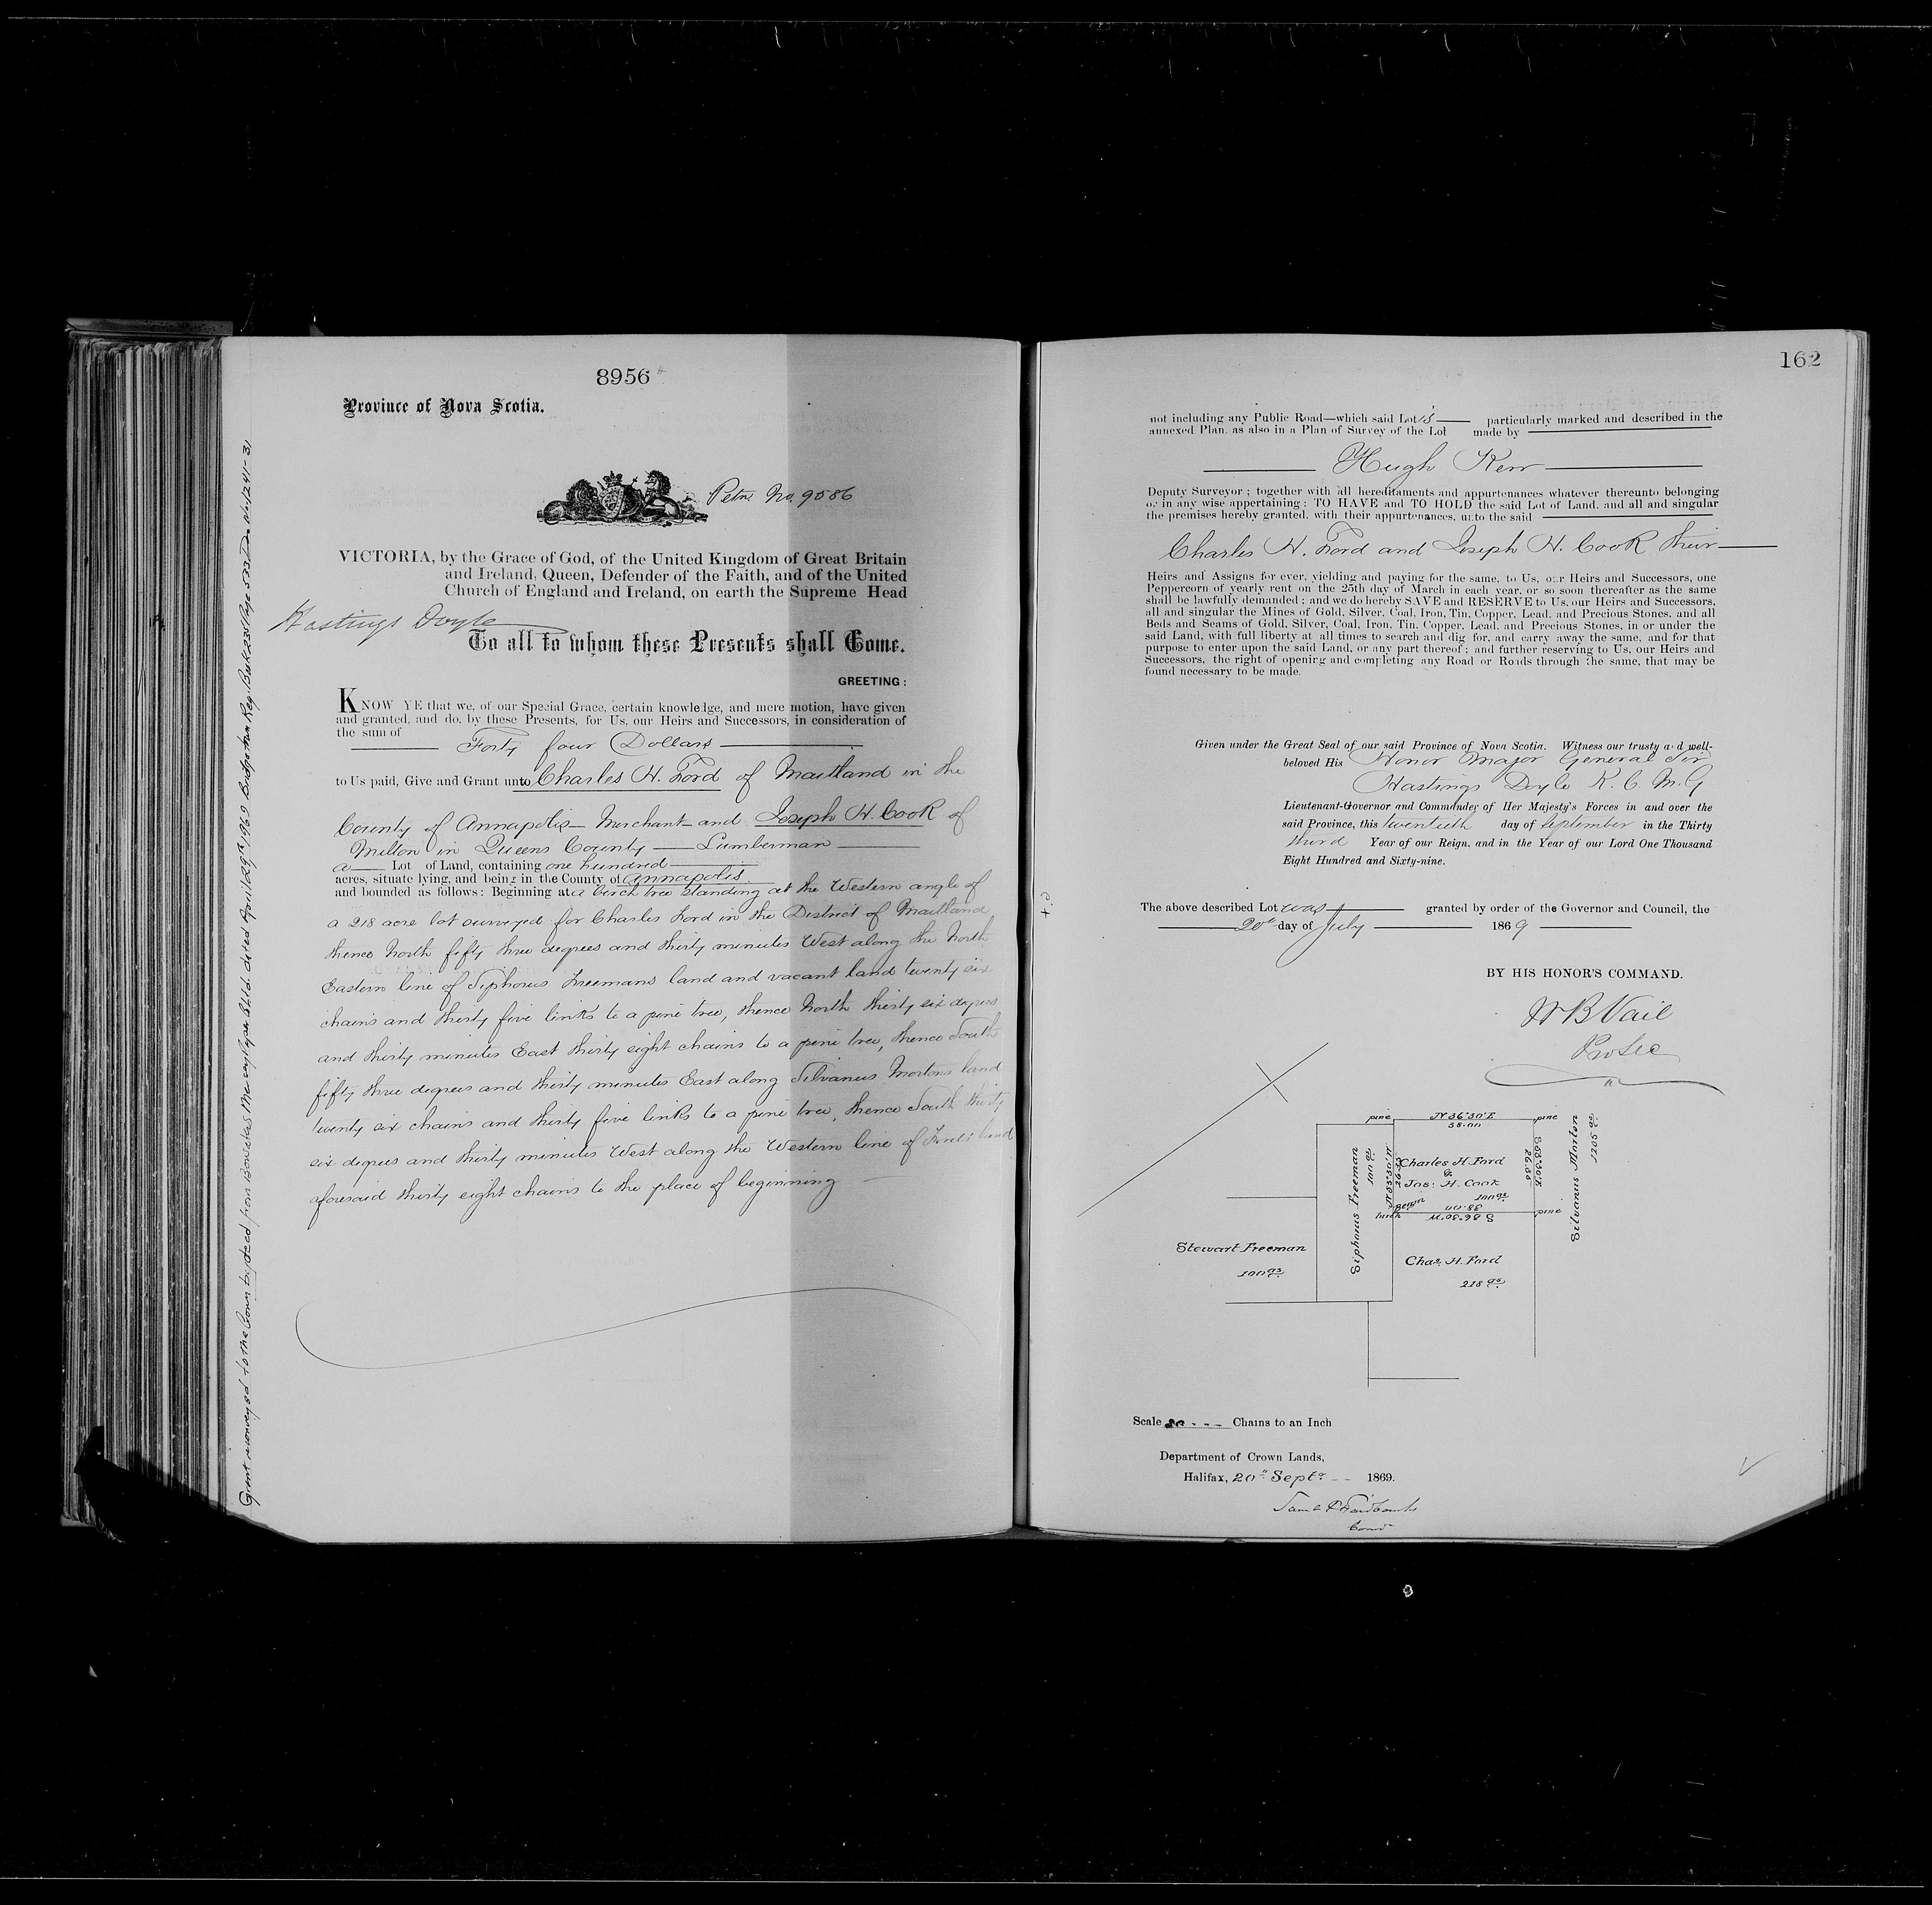 8956
Province of Nova Scotia.
Petn No. 9586
VICTORIA, by the Grace of God, of the United Kingdom of Great Britain
and Ireland, Queen, Defender of the Faith, and of the United
Church of England and Ireland, on earth the Supreme Head
Hastings Doyle
To all to whom these Presents shall Come.
GREETING:
KNOW YE that we, of our Special Grace, certain knowledge, and mere motion, have given
and granted, and do, by these Presents, for Us, our Heirs and Successors, in consideration of
the sum of
Forty four Dollars
to Us paid, Give and Grant unto Charles H. Ford of Maitland in the
County of Annapolis Merchant and Joseph H. Cook of
Milton in Queens County Lumberman
a Lot of Land, containing one hundred
acres, situate lying, and being in the County of Annapolis
and bounded as follows: Beginning at a birch tree standing at the Western angle of
a 218 acre lot surveyed for Charles Ford in the District of Maitland
thence North fifty three degrees and thirty minutes West along the North
Eastern line of Siphorus Freemans land and vacant land twenty six
chains and thirty five links to a pine tree, thence North thirty six degrees
and thirty minutes East thirty eight chains to a pine tree, thence South
fifty three degrees and thirty minutes East along Silvanus Mortons land
twenty six chains and thirty five links to a pine tree, thence South thirty
six degrees and thirty minutes West along the Western line of Fords land
aforesaid thirty eight chains to the place of beginning
Grant reconveyed to the Crown by deed from Bowater Mersey Paper Co. Ltd. dated April 29th, 1969 Bridgetown Reg. Book 235 Page 533
162
not including any Public Road—which said Lot is particularly marked and described in the
annexed Plan, as also in a Plan of Survey of the Lot made by
Hugh Kerr
Deputy Surveyor; together with all hereditaments and appurtenances whatever thereunto belonging
or in any wise appertaining: TO HAVE and TO HOLD the said Lot of Land, and all and singular
the premises hereby granted, with their appurtenances, unto the said
Charles H. Ford and Joseph H. Cook their
Heirs and Assigns for ever, yielding and paying for the same, to Us, our Heirs and Successors, one
Peppercorn of yearly rent on the 25th day of March in each year, or so soon thereafter as the same
shall be lawfully demanded; and we do hereby SAVE and RESERVE to Us, our Heirs and Successors,
all and singular the Mines of Gold, Silver, Coal, Iron, Tin, Copper, Lead, and Precious Stones, and all
Beds and Seams of Gold, Silver, Coal, Iron, Tin, Copper, Lead, and Precious Stones, in or under the
said Land, with full liberty at all times to search and dig for, and carry away the same, and for that
purpose to enter upon the said Land, or any part thereof; and further reserving to Us, our Heirs and
Successors, the right of opening and completing any Road or Roads through the same, that may be
found necessary to be made.
Given under the Great Seal of our said Province of Nova Scotia. Witness our trusty and well-
beloved His Honor Major General Sir
Hastings Doyle K. C. M. G
Lieutenant-Governor and Commander of Her Majesty's Forces in and over the
said Province, this twentieth day of September in the Thirty
third Year of our Reign, and in the Year of our Lord One Thousand
Eight Hundred and Sixty-nine.
The above described Lot was granted by order of the Governor and Council, the
20th day of July 1869
BY HIS HONOR'S COMMAND.
W B Vail
Pro Sec
pine N 36°30' E pine
38.00
Siphorus Freeman
100 as
N 53°30' W
26.35
Charles H. Ford
&
Jos: H. Cook
100 as
S 53°30' E
26.35
Silvanus Morton
1205 as
birch
Begin
38.00
S 36°30' W
pine
Stewart Freeman
100 as
Chas. H. Ford
218 as
Scale 20 Chains to an Inch
Department of Crown Lands,
Halifax, 20th Septr 1869.
Saml P Fairbanks
Comr